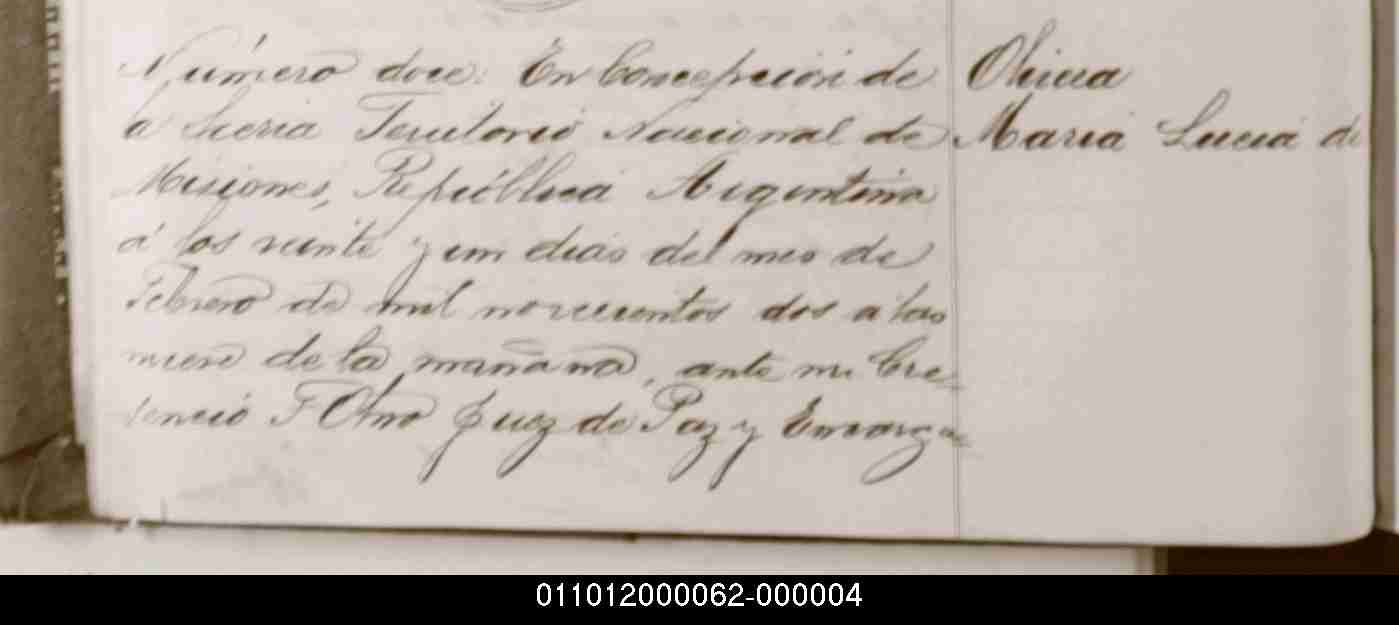 Número doce: En Concepción de
a Sierra Territorio Nacional de
Misiones, República Argentina
á los veinte y un dias del mes de
Febrero de mil novecientos dos a las
nueve de la mañana, ante mi Cre
cencio F Otaño Juez de Paz y Encarga
Maria Lucia de
011012000062-000004